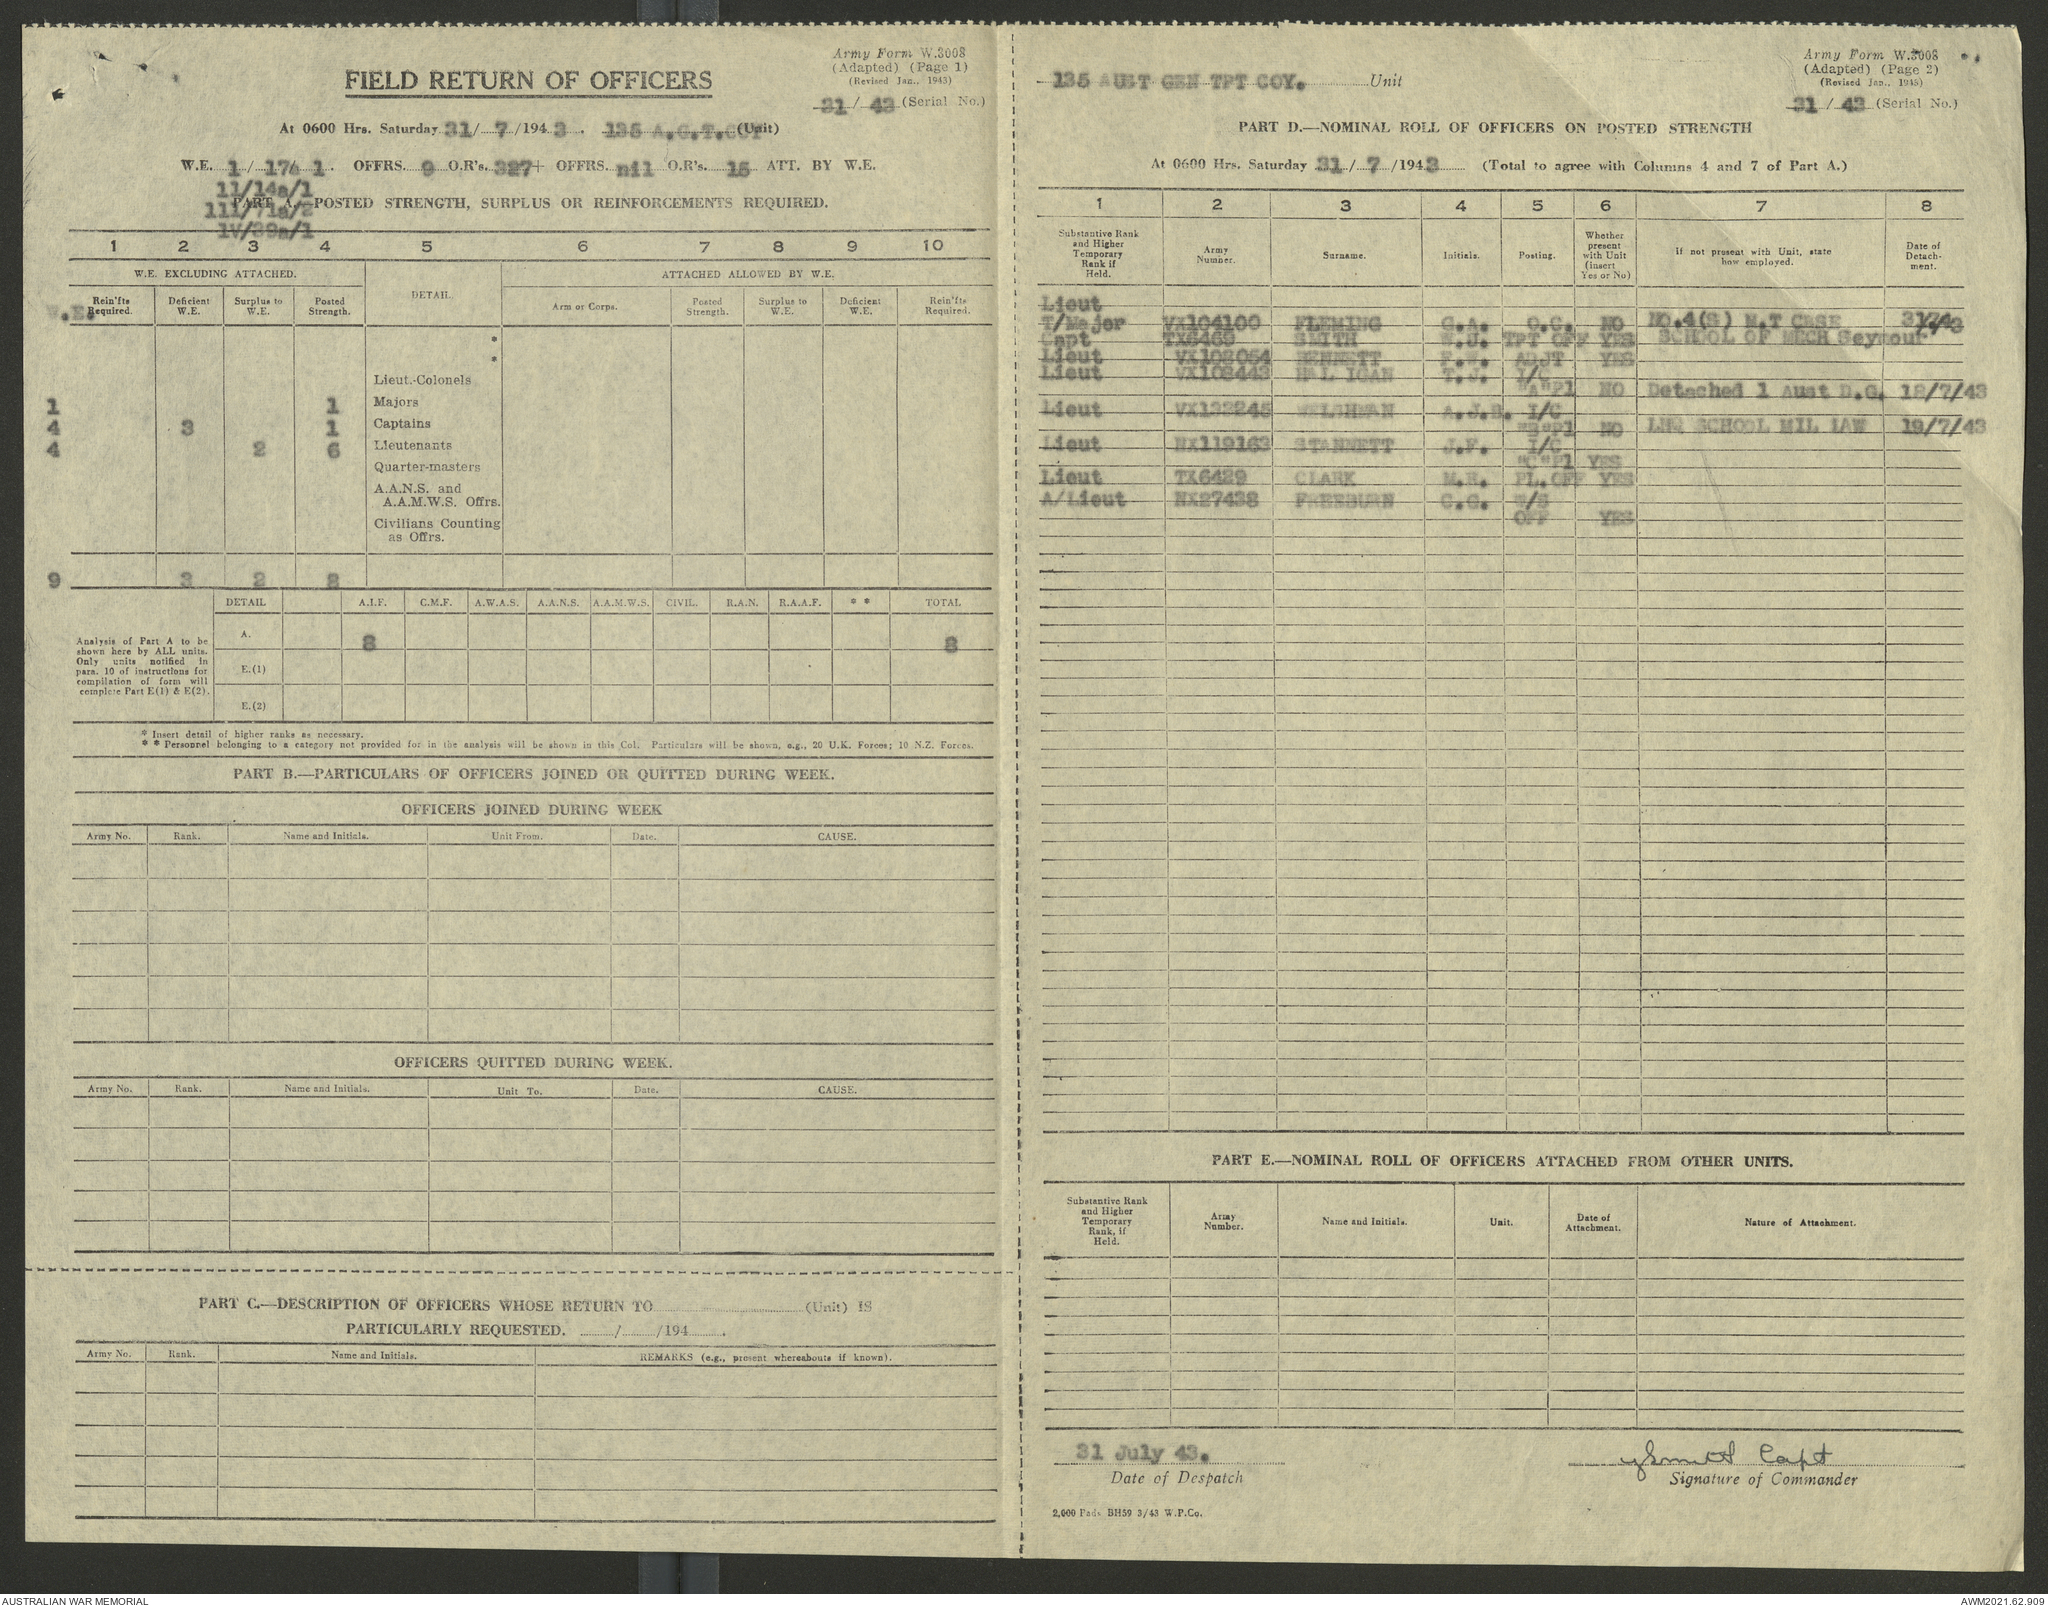 Army Form W.3008
(Adapted) (Page 1)
(Revised Jan., 1943)
FIELD RETURN OF OFFICERS
31/ 43 (Serial No.)
At 0600 Hrs. Saturday 31/ 7 /194 3 . 135 A.G.T.COY (Unit)
W.E. 1 / 17a 1 . OFFRS. 9 O.R's. 327+ OFFRS. nil O.R's. 15 ATT. BY W.E.
11/14a/1
111/71a/2
1V/39a/1
PART A.—POSTED STRENGTH, SURPLUS OR REINFORCEMENTS REQUIRED.
1 2 3 4 5 6 7 8 9 10
W.E. EXCLUDING ATTACHED. DETAIL. ATTACHED ALLOWED BY W.E.
W.E. Rein'fts Required. Deficient W.E. Surplus to W.E. Posted Strength. Arm or Corps. Posted Strength. Surplus to W.E. Deficient W.E. Rein'fts Required.
*
*
Lieut.-Colonels
1 1 Majors
4 3 1 Captains
4 2 6 Lieutenants
Quarter-masters
A.A.N.S. and
A.A.M.W.S. Offrs.
Civilians Counting
as Offrs.
9 3 2 8
DETAIL A.I.F. C.M.F. A.W.A.S. A.A.N.S. A.A.M.W.S. CIVIL. R.A.N. R.A.A.F. * * TOTAL
Analysis of Part A to be
shown here by ALL units.
Only units notified in
para. 10 of instructions for
compilation of form will
complete Part E(1) & E(2).
A. 8 8
E.(1)
E.(2)
* Insert detail of higher ranks as necessary.
* * Personnel belonging to a category not provided for in the analysis will be shown in this Col. Particulars will be shown, e.g., 20 U.K. Forces; 10 N.Z. Forces.
PART B.—PARTICULARS OF OFFICERS JOINED OR QUITTED DURING WEEK.
OFFICERS JOINED DURING WEEK
Army No. Rank. Name and Initials. Unit From. Date. CAUSE.
OFFICERS QUITTED DURING WEEK.
Army No. Rank. Name and Initials. Unit To. Date. CAUSE.
PART C.—DESCRIPTION OF OFFICERS WHOSE RETURN TO (Unit) IS
PARTICULARLY REQUESTED. / /194 .
Army No. Rank. Name and Initials. REMARKS (e.g., present whereabouts if known).
Army Form W.3008
(Adapted) (Page 2)
(Revised Jan., 1943)
135 AUST GEN TPT COY. Unit
31 / 43 (Serial No.)
PART D.—NOMINAL ROLL OF OFFICERS ON POSTED STRENGTH
At 0600 Hrs. Saturday 31/ 7 /1943 (Total to agree with Columns 4 and 7 of Part A.)
1 2 3 4 5 6 7 8
Substantive Rank and Higher Temporary Rank if Held. Army Number. Surname. Initials. Posting. Whether present with Unit (insert Yes or No) If not present with Unit, state how employed. Date of Detach-ment.
Lieut
T/Major VX104100 FLEMING G.A. O.C. NO NO.4(S) M.T CRSE
SCHOOL OF MECH Seymour
Capt TX6469 SMITH W.J. TPT OFF YES
Lieut VX108054 BENNETT F.W. ADJT YES
Lieut VX108443 HAL IGAN T.J. I/C
"A"Pl NO Detached 1 Aust D.G. 18/7/43
Lieut VX132245 WELSHMAN A.J.B. I/C
"B"Pl NO LHQ SCHOOL MIL LAW 19/7/43
Lieut NX119163 STANNETT J.F. I/C
"C"Pl YES
Lieut TX6429 CLARK M.R. PL.OFF YES
A/Lieut NX27438 FREEBURN C.G. W/S
OFF YES
PART E.—NOMINAL ROLL OF OFFICERS ATTACHED FROM OTHER UNITS.
Substantive Rank and Higher Temporary Rank, if Held. Army Number. Name and Initials. Unit. Date of Attachment. Nature of Attachment.
31 July 43.
Date of Despatch
Smith Capt
Signature of Commander
2,000 Pads BH59 3/43 W.P.Co.
AUSTRALIAN WAR MEMORIAL
AWM2021.62.909